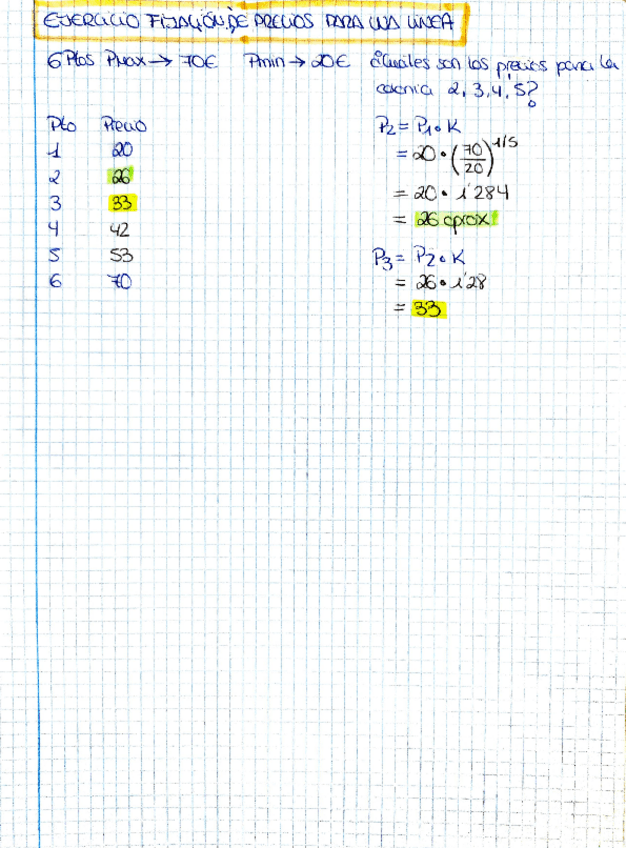 EJERCICIO FIJACIÓN DE PRECIOS PARA UNA LÍNEA
6 Ptos Pmax → 70€ Pmin → 20€ ¿Cuales son los precios para la
colonia 2, 3, 4, 5?
Pto Precio
1 20
2 26
3 33
4 42
5 53
6 70
P2 = P1 • K
= 20 • (70/20)^1/5
= 20 • 1'284
= 26 aprox
P3 = P2 • K
= 26 • 1'28
= 33